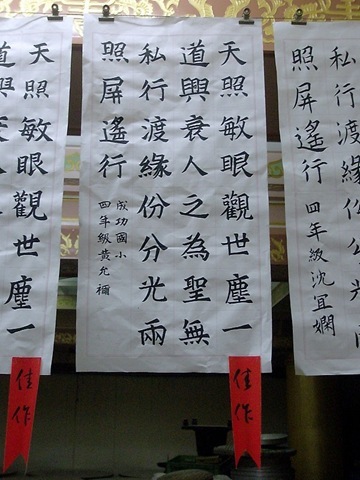 私行渡緣份
照屏遙行
四年級沈宜嫻
天照敏眼觀世塵一
道興衰人之為聖無
私行渡緣份分光兩
照屏遙行
成功國小
四年級黃允禰
佳作
天照敏眼觀世塵一
道興
佳作